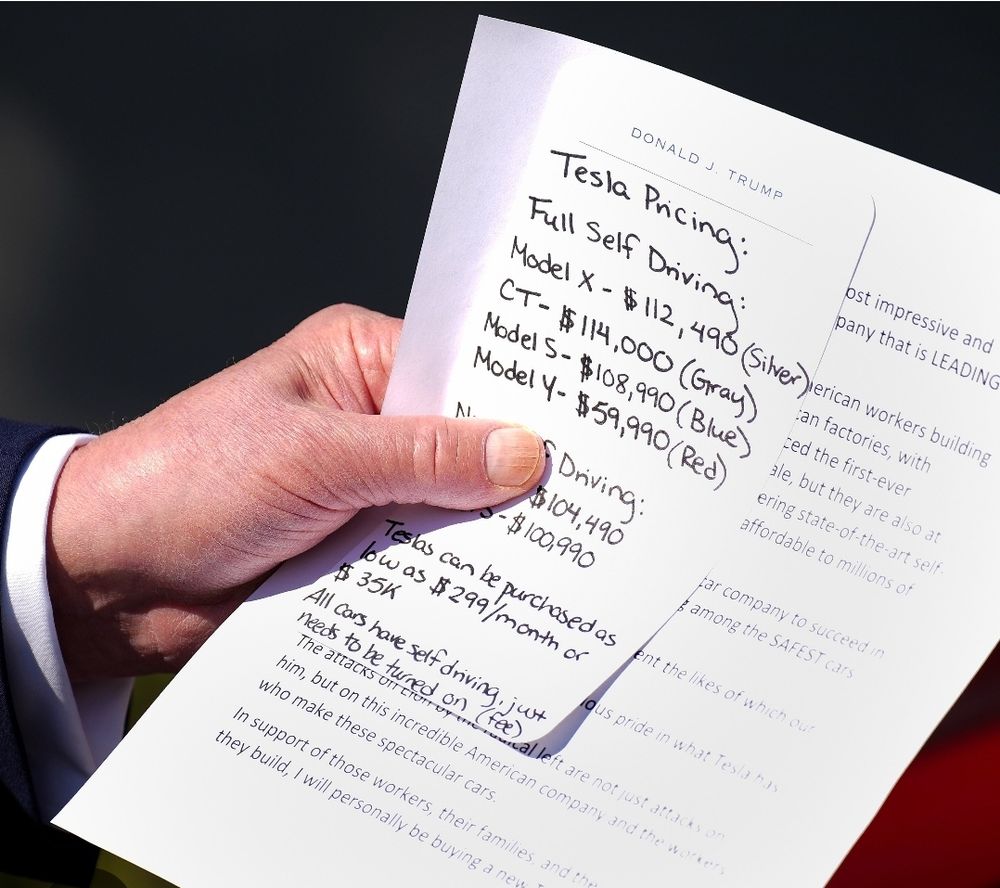 DONALD J. TRUMP
Tesla Pricing:
Full Self Driving:
Model X - $112,490 (Silver)
CT - $114,000 (Gray)
Model S - $108,990 (Blue)
Model Y - $59,990 (Red)
Driving:
$104,490
S - $100,990
Teslas can be purchased as
low as $299/month or
$35K
All cars have self driving, just
needs to be turned on (fee)
ost impressive and
pany that is LEADING
erican workers building
can factories, with
ced the first-ever
ale, but they are also at
ering state-of-the-art self-
affordable to millions of
car company to succeed in
among the SAFEST cars
ent the likes of which our
ious pride in what Tesla has
The attacks on Elon by the radical left are not just attacks on
him, but on this incredible American company and the workers
who make these spectacular cars.
In support of those workers, their families, and the
they build, I will personally be buying a new